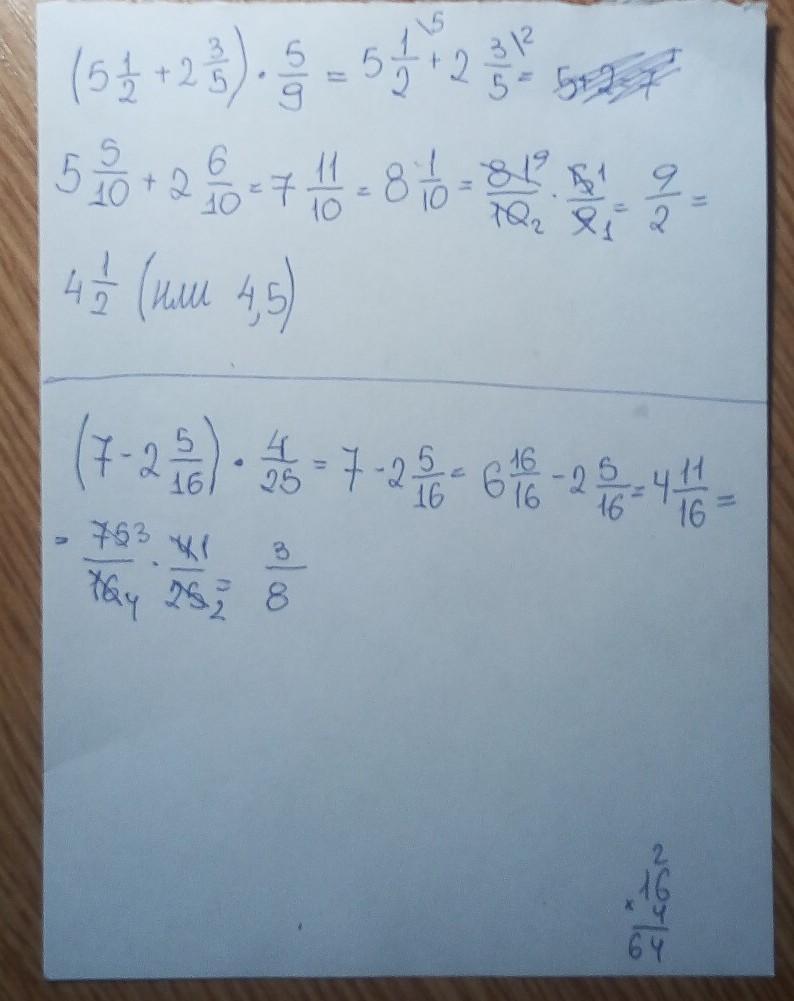 (5 1/2 + 2 3/5) · 5/9 = 5 1/2 \5 + 2 3/5 \2 = 5+2=7
5 5/10 + 2 6/10 = 7 11/10 = 8 1/10 = 81 9/10 2 · 5 1/9 1 = 9/2 =
4 1/2 (или 4,5)
(7 - 2 5/16) · 4/25 = 7 - 2 5/16 = 6 16/16 - 2 5/16 = 4 11/16 =
= 75 3/16 4 · 4 1/25 2 = 3/8
2
16
× 4
64